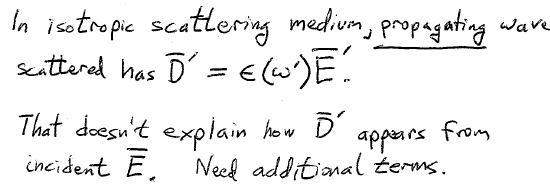 In isotropic scattering medium, propagating wave
scattered has D̅′ = ϵ(ω′)E̅′.
That doesn't explain how D̅′ appears from
incident E̅. Need additional terms.